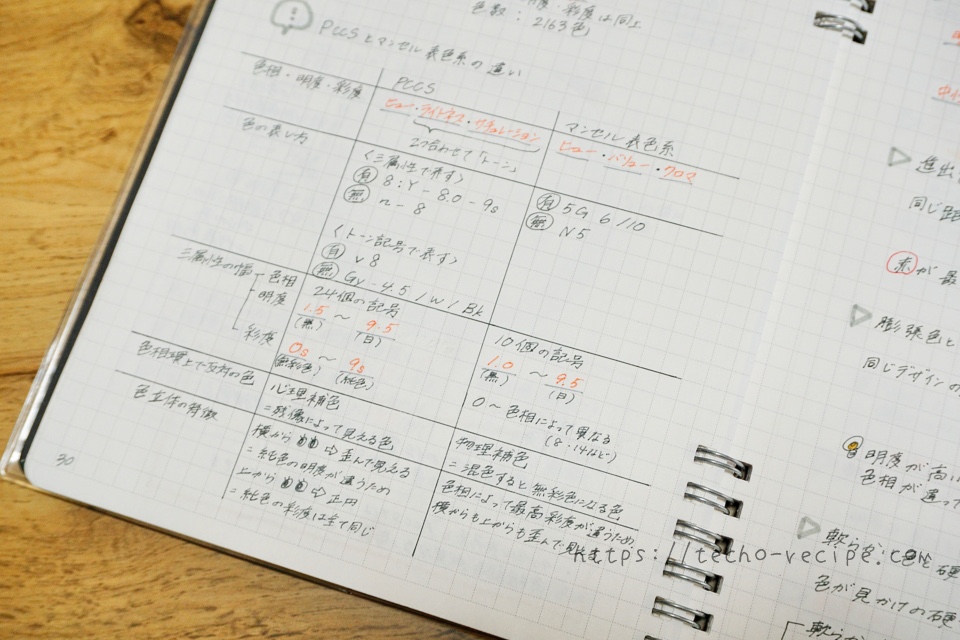 度・彩度は同上
色数：2163色)
PCCSとマンセル表色系の違い
PCCS
マンセル表色系
色相・明度・彩度
ヒュー・ライトネス・サチュレーション
2つ合わせて「トーン」
ヒュー・バリュー・クロマ
色の表し方
〈三属性で表す〉
有 8:Y-8.0-9s
無 n-8
〈トーン記号で表す〉
有 v8
無 Gy-4.5/W/Bk
有 5G 6/10
無 N5
三属性の幅
色相
24個の記号
10個の記号
明度
1.5 ～ 9.5
(黒) (白)
1.0 ～ 9.5
(黒) (白)
彩度
0s ～ 9s
(無彩色) (純色)
0～色相によって異なる
(8・14など)
色相環上で反対の色
心理補色
=残像によって見える色
物理補色
=混色すると無彩色になる色
色立体の特徴
横から ⇨ 歪んで見える
=純色の明度が違うため
上から ⇨ 正円
=純色の彩度は全て同じ
色相によって最高彩度が違うため
横からも上からも歪んで見える
30
https://techo-recipe.com
進出
同じ距
赤が最
膨張色と
同じデザインの
明度が高い
色相が違って
軟らかい色と硬
色が見かけの硬
軟らか